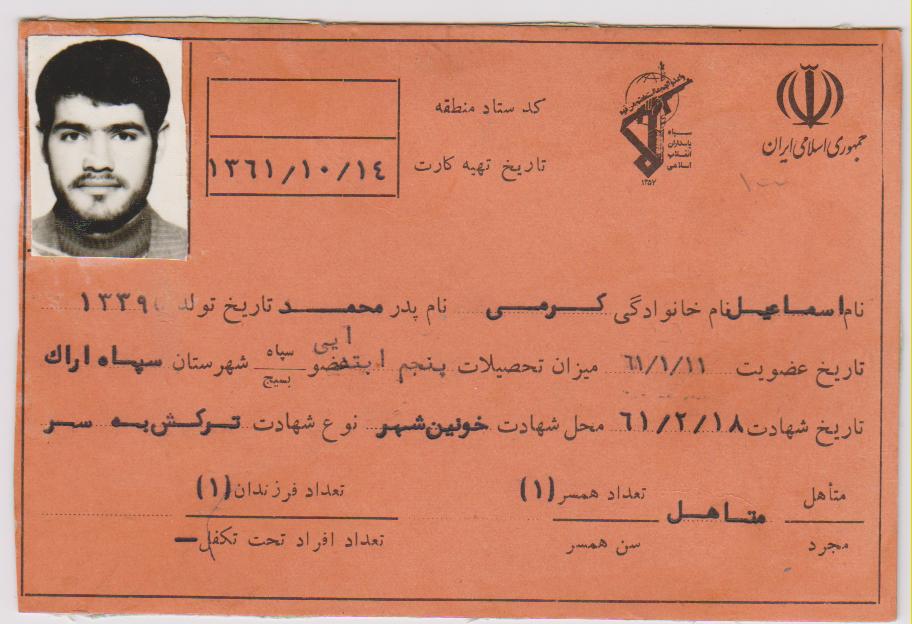 جمهوری اسلامی ایران
سپاه
پاسداران
انقلاب
اسلامی
۱۳۵۷
کد ستاد منطقه
تاریخ تهیه کارت ۱۳۶۱/۱۰/۱۴
نام اسماعیل نام خانوادگی کرمی نام پدر محمد تاریخ تولد ۱۳۳۹
تاریخ عضویت ۶۱/۱/۱۱ میزان تحصیلات پنجم ابتدایی عضو سپاه بسیج شهرستان سپاه اراك
تاریخ شهادت ۶۱/۲/۱۸ محل شهادت خونین‌شهر نوع شهادت ترکش به سر
متأهل متاهل تعداد همسر (۱) تعداد فرزندان (۱)
مجرد سن همسر تعداد افراد تحت تکفل —